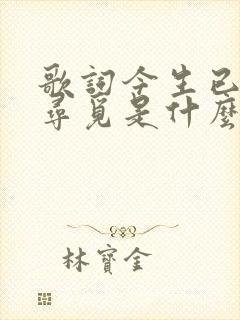 歌詞今生已
尋覓是什麼
林寶金